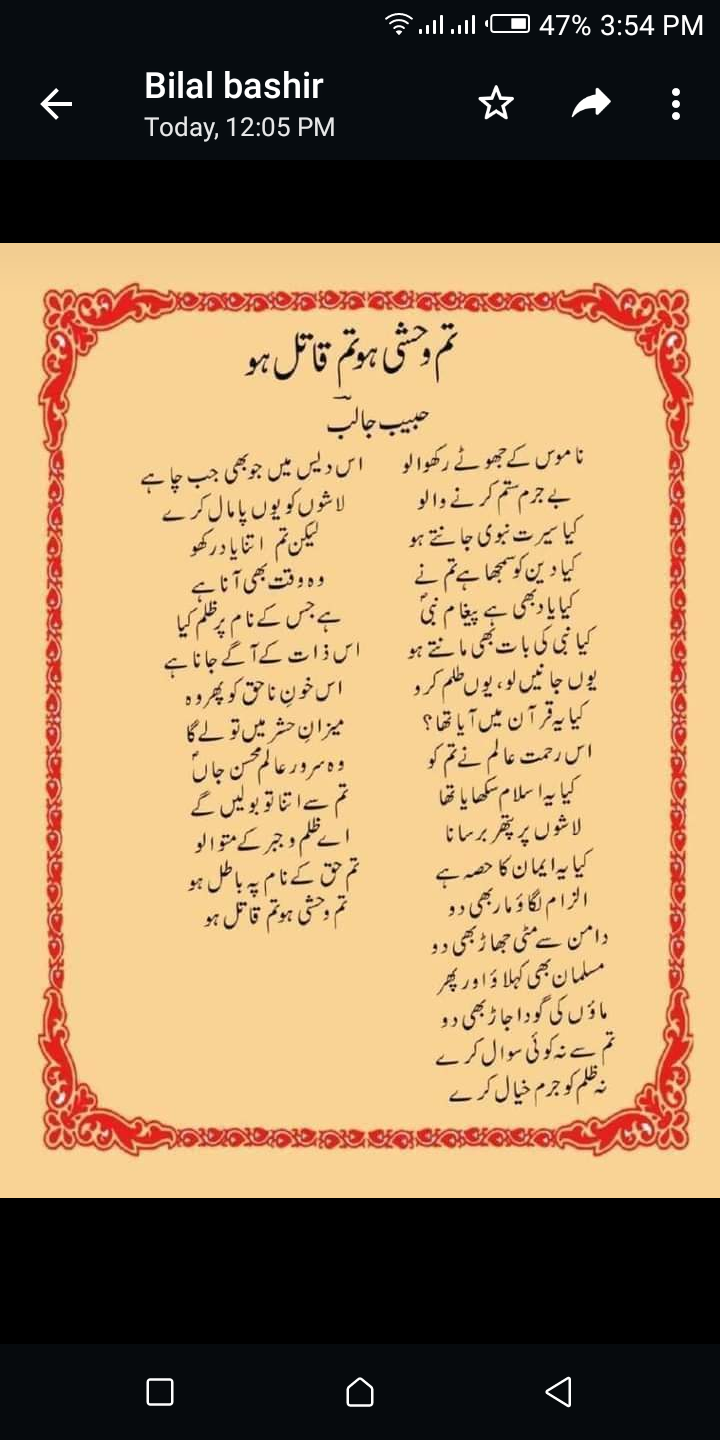 47% 3:54 PM
Bilal bashir
Today, 12:05 PM
تم وحشی ہو تم قاتل ہو
حبیب جالب
ناموس کے جھوٹے رکھوالو
بے جرم ستم کرنے والو
کیا سیرت نبوی جانتے ہو
کیا دین کو سمجھا ہے تم نے
کیا یاد بھی ہے پیغام نبیؐ
کیا نبی کی بات بھی مانتے ہو
یوں جانیں لو، یوں ظلم کرو
کیا یہ قرآن میں آیا تھا؟
اس رحمت عالم نے تم کو
کیا یہ اسلام سکھایا تھا
لاشوں پر پتھر برسانا
کیا یہ ایمان کا حصہ ہے
الزام لگاؤ مار بھی دو
دامن سے مٹی جھاڑ بھی دو
مسلمان بھی کہلاؤ اور پھر
ماؤں کی گود اجاڑ بھی دو
تم سے نہ کوئی سوال کرے
نہ ظلم کو جرم خیال کرے
اس دیس میں جو بھی جب چاہے
لاشوں کو یوں پامال کرے
لیکن تم اتنا یاد رکھو
وہ وقت بھی آنا ہے
ہے جس کے نام پر ظلم کیا
اس ذات کے آگے جانا ہے
اس خونِ ناحق کو پھر وہ
میزانِ حشر میں تولے گا
وہ سرور عالم محسن جاںؐ
تم سے اتنا تو بولیں گے
اے ظلم و جبر کے متوالو
تم حق کے نام پہ باطل ہو
تم وحشی ہو تم قاتل ہو